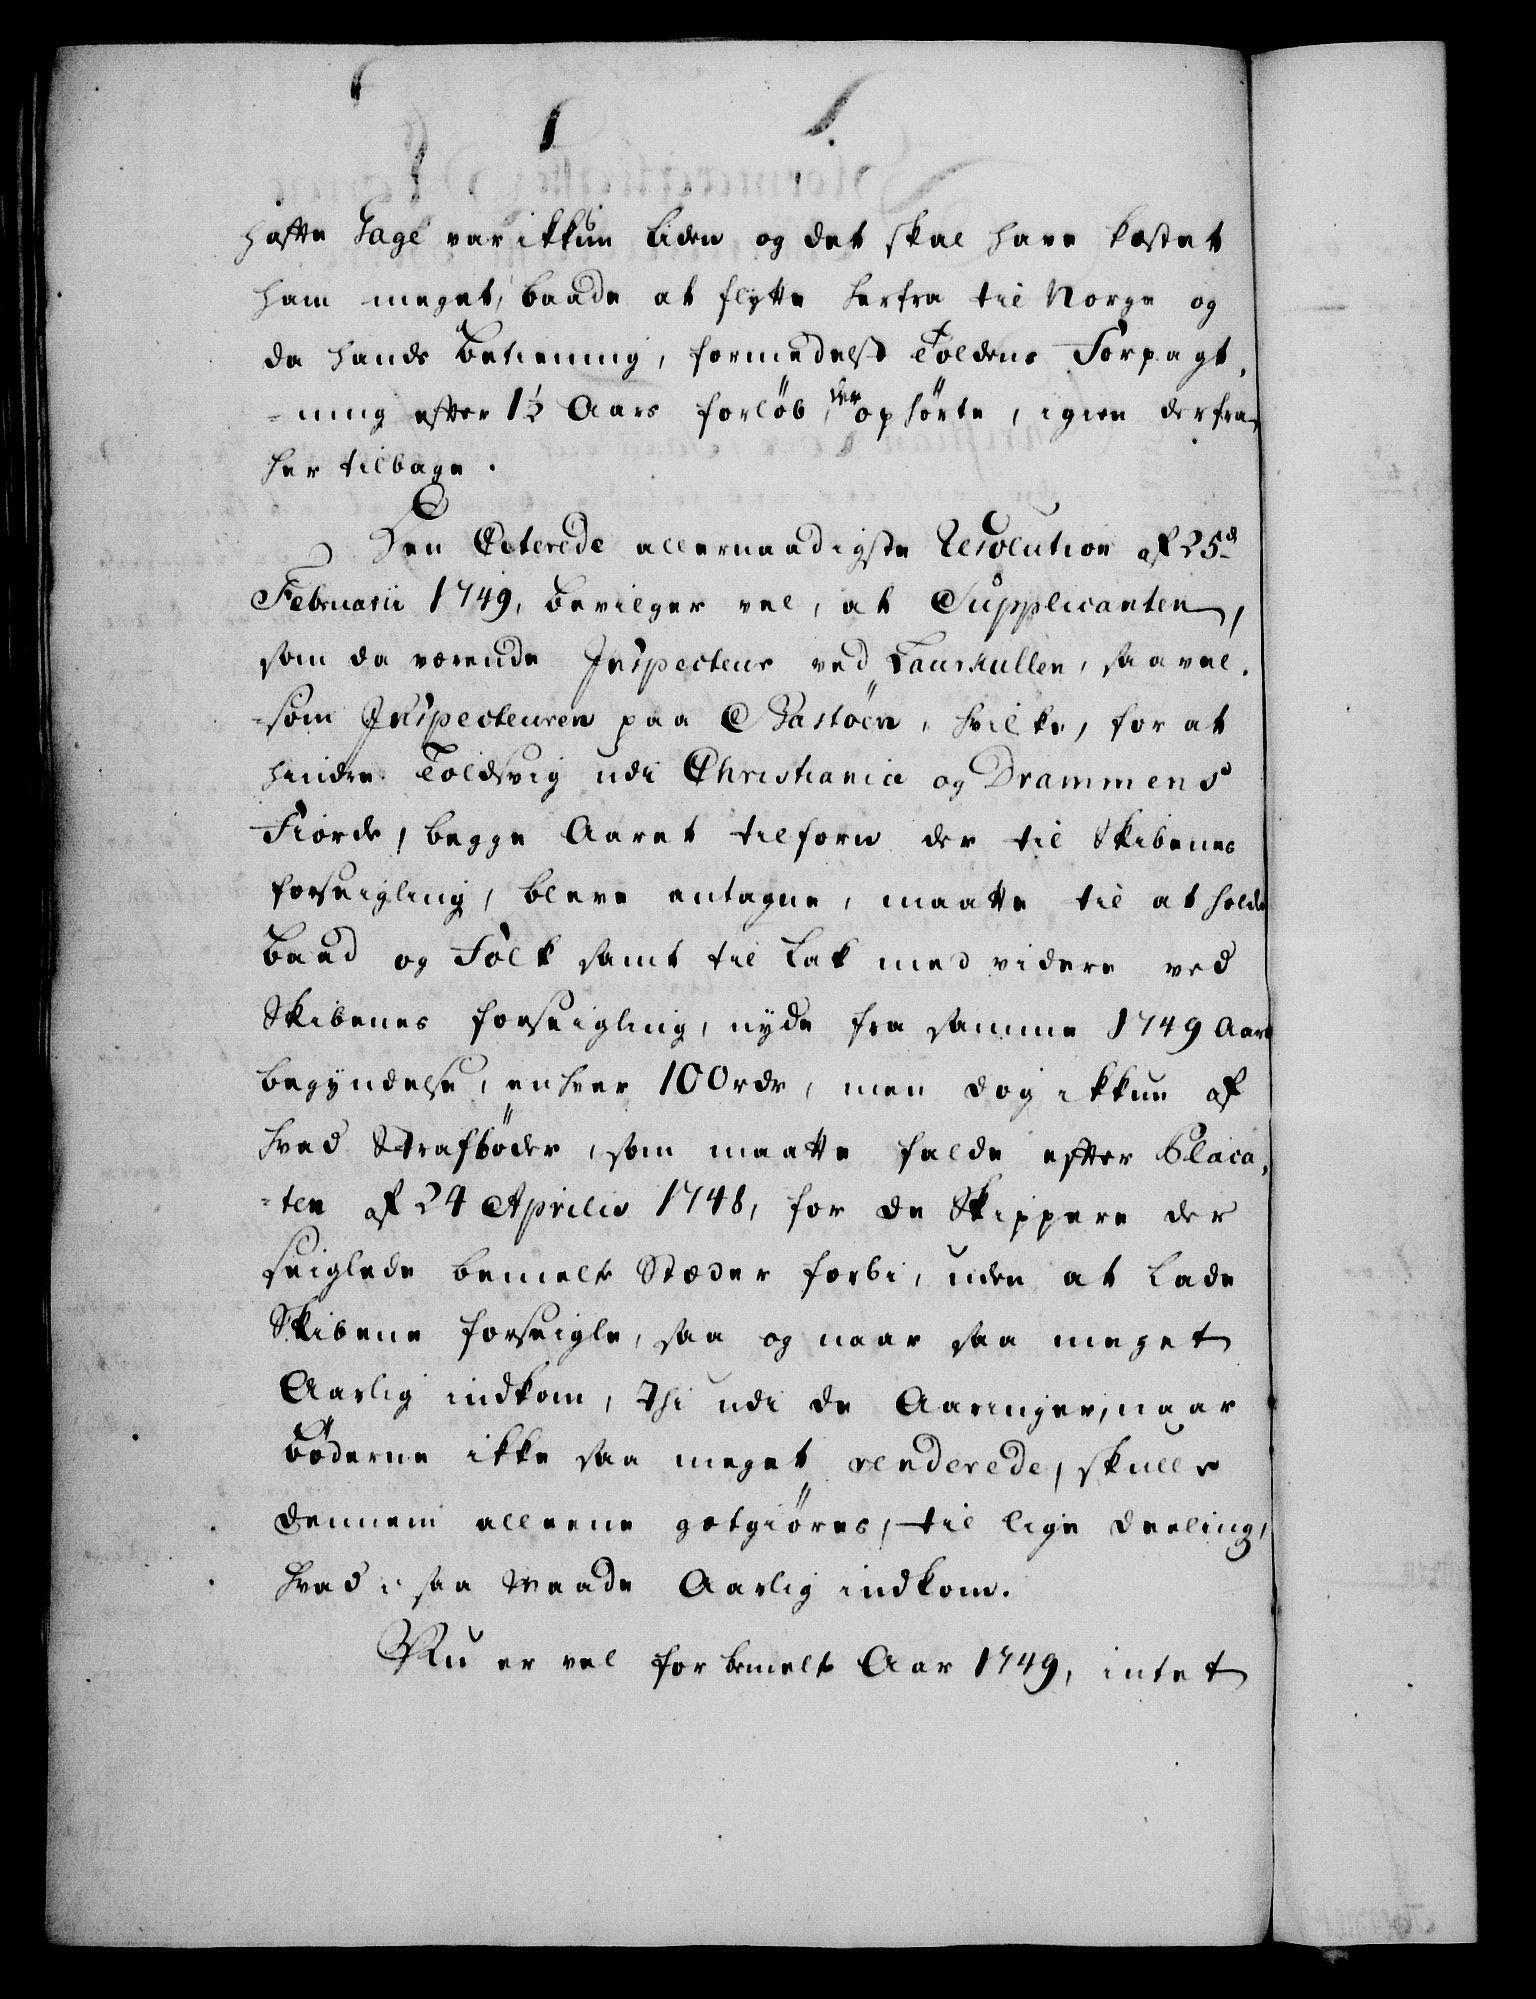 hafte Gage var ikkun liden og det skal have kostet
ham meget, baade at flytte herfra til Norge og
da hands Betiening, formedelst Toldens Forpagt,
-ning efter 1½ Aars forløb, der ophørte, igien derfra
her tilbage.
Den Citerede allernaadigste Resolution af 25d
Februarii 1749, bevilger vel, at Supplicanten,
som da værende Inspecteur ved Laurkullen, saavel,
-som Inspecteuren paa Bastöen, hvilke, for at
hindre Toldsvig udi Christiania og Drammens
Fiorde, begge Aaret tilforn der til Skibenes
forseigling, bleve antagne, maatte til at holde
Baad og Folk samt til Lak med videre ved
Skibenes forseigling, nyde fra samme 1749 Aars
begyndelse, enhver 100 rdr, men dog ikkun af
hvad Strafbøder, som maatte falde efter Placa,
-ten af 24 Aprilis 1748, for de Skippere der
seiglede bemelte Stæder forbi, uden at lade
Skibene forseigle, saa og naar saa meget
Aarlig indkom, Thi udi de Aaringer, naar
Bøderne ikke saa meget renderede, skulle
dennem alleene gotgiøres, til lige deeling,
hvad i saa Maade Aarlig indkom.
Nu er vel for bemelte Aar 1749, intet